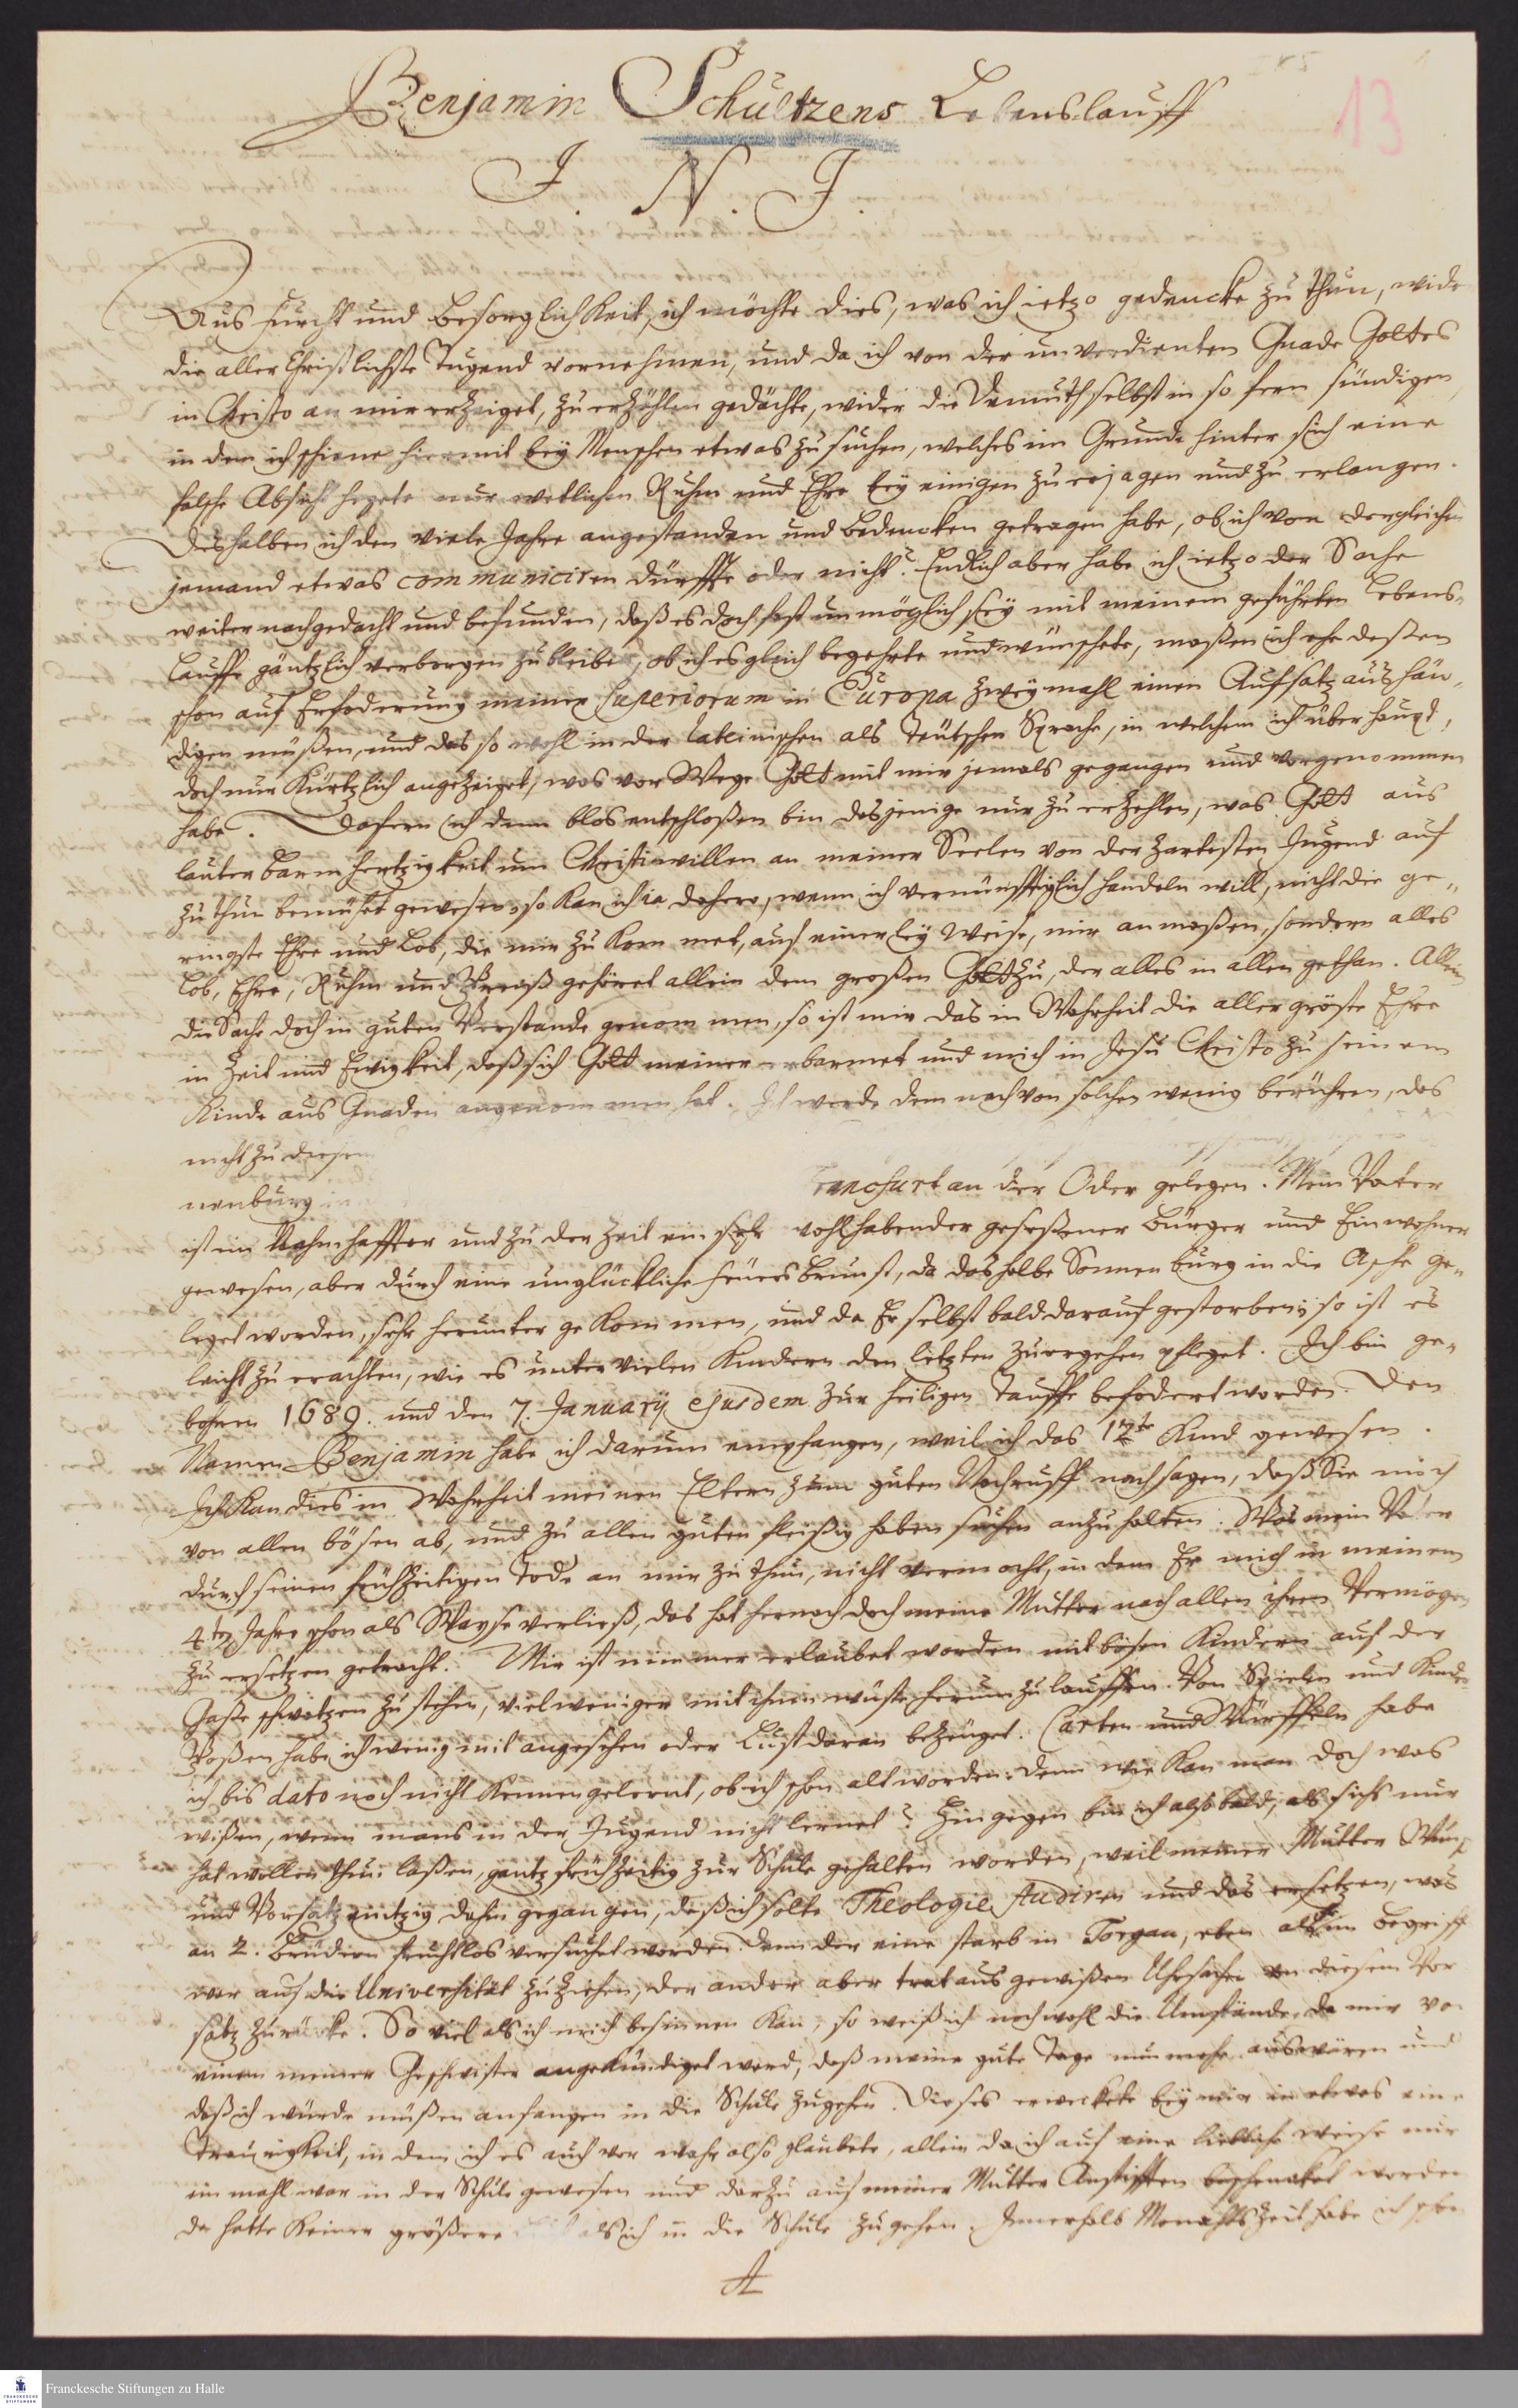 Benjamin Schultzens Lebenslauff
13
J. N. J.
Aus furcht und Besorglichkeit, ich möchte dies, was ich ietzo gedencke zu thun, wider
die aller Christlichste Tugend vornehmen, und da ich von der unverdienten Gnade Gottes
in Christo an mir erzeiget, zu erzöhlen gedächte, wider die Demuth selbst in so fern sündigen
in dem ich schiene hiermit bey Menschen etwas zu suchen, welches im Grunde hinter sich eine
falsche Absicht hegete nur weltlichen Ruhm und Ehre bey einigen zu erjagen und zu erlangen.
Deshalben ich den viele Jahre angestanden und Bedencken getragen habe, ob ich von dergleichen
jemand etwas communiciren dürffte oder nicht? Endlich aber habe ich ietzo der Sache
weiter nachgedacht und befunden, daß es doch fast unmöglich sey mit meinem geführten Lebens-
Lauffe gäntzlich verborgen zu bleiben, ob ich es gleich begehrte und wünschete, maßen ich ehe deßen
schon auf Erfoderung meiner Superiorum in Europa zweymahl einen Aufsatz aushän-
digen müßen, und das so wohl in der Lateinischen als Teütschen Sprache, in welchem ich überhaupt,
doch nur Kürtzlich angezeiget, was vor Wege Gott mit mir jemals gegangen und vorgenommen
habe. Dafern ich denn blos entschloßen bin dasjenige nur zu erzehlen, was Gott aus
lauter Barmhertzigkeit um Christi willen an meiner Seelen von der zartesten Jugend auf
zu thun bemühet gewesen, so kan ich ia dahero, wenn ich vernünfftiglich handeln will, nicht die ge-
ringste Ehre und Lob, die mir zu kommet, auf einerley Weise, mir anmaßen, sondern alles
Lob, Ehre, Ruhm und Preiß gehöret allein dem großen Gott zu, der alles in allen gethan. Allein
die Sache doch in guten Verstande genommen, so ist mir das in Wahrheit die aller gröste Ehre
in Zeit und Ewigkeit, daß sich Gott meiner erbarmet und mich in Jesu Christo zu seinem
Kinde aus Gnaden angenommen hat. Ich werde dem nach von solchen wenig berühren, das
nicht zu diesem
nenburg in Francfurt an der Oder gelegen. Mein Vater
ist ein Nahmhaffter und zu der Zeit ein sehr wohlhabender geseßener Bürger und Einwohner
gewesen, aber durch eine unglückliche feüersbrunst, da dashalbe Sonnenburg in die Asche ge-
leget worden, sehr herunter gekommen, und da Er selbst bald darauf gestorben; so ist es
leicht zu erachten, wie es unter vielen Kindern den letzten zu ergehen pfleget. Ich bin ge-
bohren 1689. und den 7. Januarij ejusdem zur heiligen Tauffe befodert worden. Den
Namen Benjamin habe ich darum empfangen, weil ich das 12te Kind gewesen.
Ich kan dies in Wahrheit meinen Eltern zum guten Nachruff nachsagen, daß Sie mich
von allen bösen ab, und zu allen guten fleißig haben suchen anzuhalten. Was mein Vater
durch seinen frühzeitigen Tode an mir zu thun, nicht vermocht, in dem Er mich in meinem
4ten Jahre schon als Wayse verließ, das hat hernach doch meine Mutter nach allen ihren Vermögen
zu ersetzen getracht. Mir ist nimmer erlaubet worden mit bösen Kindern auf der
Gaße schwätzen zu stehen, vielweniger mit ihnen wüste herum zu lauffen. Von Spielen und Kinder-
Poßen habe ich wenig mit angesehen oder Lust daran bezeüget. Carten und Würffeln habe
ich bis dato noch nicht kennen gelernt, ob ich schon alt worden: denn wie kan man doch was
wißen, wenn mans in der Jugend nicht lernet? Hingegen bin ich also bald, als sichs nur
hat wollen thun laßen, gantz frühzeitig zur Schule gehalten worden, weil meiner Mutter Wunsch
und Vorsatz eintzig dahin gegangen, daß ich solte Theologie studiren und das ersetzen, was
an 2. Brüdern fruchtlos versuchet worden. Denn der eine starb in Torgau, eben als im Begriff
war auf die Universität zu ziehen, der ander aber trat aus gewißen Uhrsachen von diesem Vor
satz zurücke. So viel als ich mich besinnen kan, so weiß ich noch wohl die Umstände, da mir von
einem meiner Geschwister angekündiget ward, daß meine gute Tage nunmehr aus wären und
daß ich würde müßen anfangen in die Schule zugehen. Dieses erweckete bey mir in etwas eine
Traurigkeit, in dem ich es auch vor wahr also glaubete, allein da ich auf eine liebliche weise nur
ein mahl war in der Schule gewesen und darzu auf meiner Mutter Anstifften beschencket worden
da hatte keiner größere Lust als ich in die Schule zu gehen. Innerhalb Monahts Zeit habe ich schon
A
Franckesche Stiftungen zu Halle